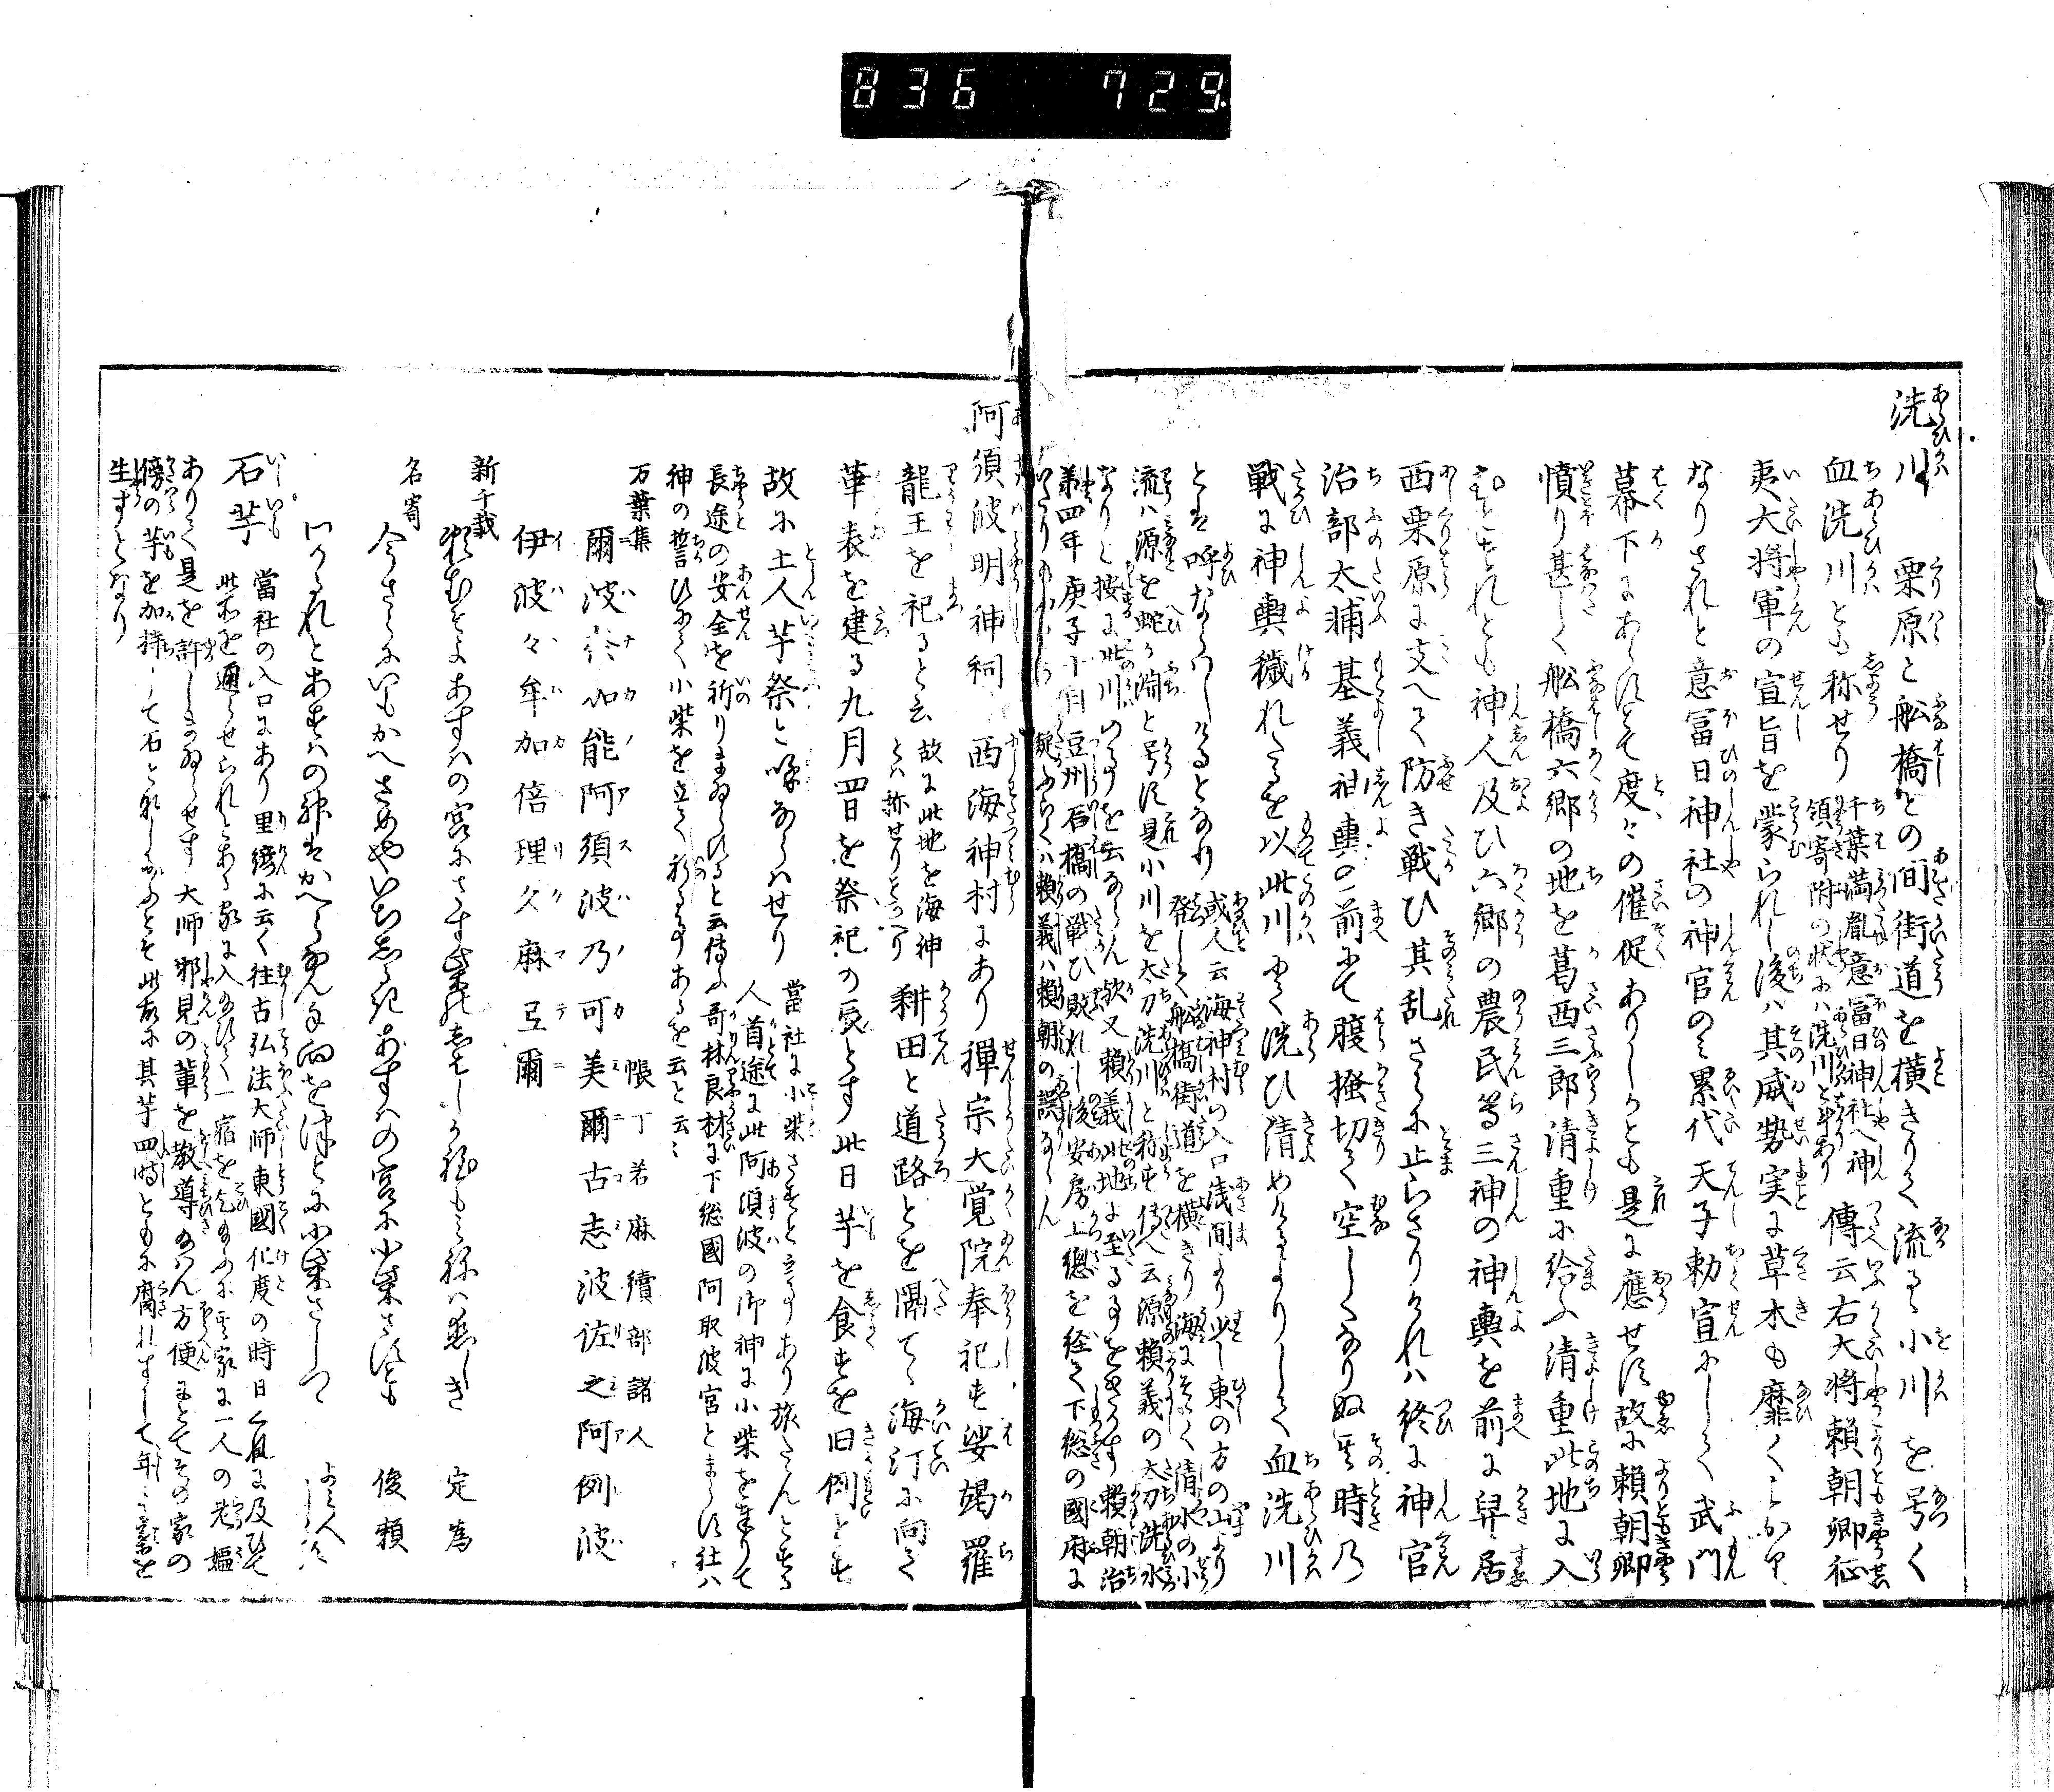 836 729
洗川　栗原と舩橋との間街道を横きりて流るゝ小川を号く
血洗川とも称せり
千葉満胤意冨日神社へ神
領寄附の状にハ洗川と斗あり
傳云右大将頼朝卿征
夷大将軍の宣旨を蒙られし後ハ其威勢実に草木も靡く
なりされと意冨日神社の神官のミ累代天子勅宣にして武門
幕下にあらすとて度々の催促ありしかとも是に應せす故に頼朝卿
憤り甚しく舩橋六郷の地を葛西三郎清重に給ふ清重此地に入
されとも神人及ひ六郷の農民等三神の神輿を前に舁居
西栗原に支へて防き戦ひ其乱さらに止らさりけれハ終に神官
治部太輔基義神輿の前にて腹掻切て空しくなりぬ其時乃
戦に神輿穢れたるを以此川にて洗ひ清めけるよりして血洗川
とは呼ならハしけるとなり
或人云海神村の入口浅間より少し東の方の山より
発して舩橋街道を横きり海にそゝく清水の小
流ハ源を蛇か渕と号す是小川を太刀洗川と称せ傳へ云源頼義の太刀洗水
なりと按に此川のことを云ならん歟又頼義此地に至ることをきかす頼朝治
承四年庚子十月豆州石橋の戦ひ敗れし後安房上總を経て下総の國府に
頼義ハ頼朝の誤ならん
阿須波明神祠　西海神村にあり禅宗大覚院奉祀せ娑竭羅
龍王を祀ると云
故に此地を海神
とハ称せりとなり
耕田と道路とを隔てゝ海汀に向て
華表を建る九月四日を祭祀の辰とす此日芋を食せを旧例とせ
故に土人芋祭と唱ならハせり
當社に小柴さすと云事あり旅たんとする
人首途に此阿須波の御神に小柴を奉りて
長途の安全を祈りまゐらすると云傳ふ哥林良材に下総國阿取波宮とまうす社ハ
神の誓ひにて小柴を立て祈る事あるを云と云々
万葉集
帳丁若麻續部諸人
爾波奈加能阿須波乃可美爾古志波佐之阿例波
伊波々牟加倍理久麻弖爾
新千載
頼むそよあすはの宮にさす柴のしはしか程も見ねハ恋しき
定為
名寄
今さらにいもかへさめやいちしるきあすはの宮に小柴さすとも
俊頼
いかゝれとあすはの神
小柴さしつ
よミ人しらす
石芋
當社の入口にあり里諺に云く往古弘法大師東國化度の時日暮に及ひて
此所を通らせられとある家に入給ひて一宿を乞給ふに其家に一人の老嫗
ありて是を許しまゐらせす大師邪見の輩を教導給ハん方便にとてその家の
傍の芋を加持して石となし給ふとそ此故に其芋四時ともに腐れすして年々葉を
生すとなり